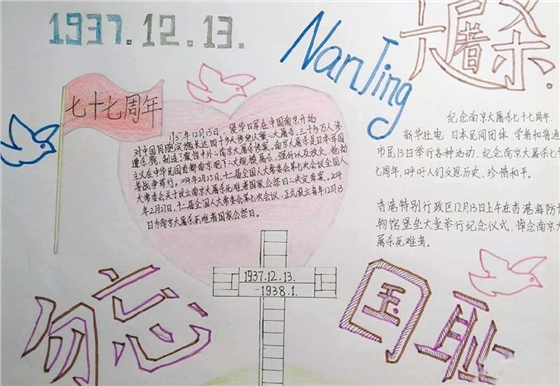 1937.12.13.
NanJing
大屠杀
七十七周年
1937年12月13日,侵华日军在中国南京开始
对中国同胞实施长达四十多天惨绝人寰的大屠杀,三十多万人惨
遭杀戮,制造了震惊中外的南京大屠杀惨案,南京大屠杀是日本军国
主义在中华民国首都南京犯下的大规模屠杀、强奸以及放火、抢劫
等战争罪行。2014年2月25日,十二届全国人大常委会第七次会议
大常委会关于设立南京大屠杀死难者国家公祭日的决定草案,
年2月27日,十二届全国人大常委会第七次会议,正式设立每年12月13
日为南京大屠杀死难者国家公祭日。
纪念南京大屠杀七十七周年.
新华社电 日本民间团体、学者和普通
市民13日举行各种活动,纪念南京大屠杀七十
七周年,呼吁人们反思历史、珍惜和平。
香港特别行政区12月13日上午在香港海防博
物馆堡垒大堂举行纪念仪式,悼念南京大
屠杀死难者。
1937.12.13.
-1938.1.
勿忘国耻